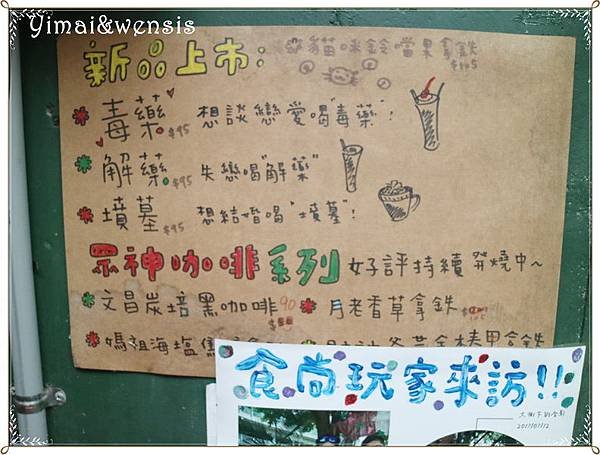 Yimai&wensis
新品上市： 貓咪鈴噹果拿鐵
$145
毒藥 $95 想談戀愛喝"毒藥"！
解藥 $95 失戀喝"解藥"
墳墓 $95 想結婚喝"墳墓"！
眾神咖啡系列 好評持續發燒中~
文昌炭培黑咖啡 90 月老香草拿鐵
媽祖海塩焦
食尚玩家來訪!!
2011/07/12